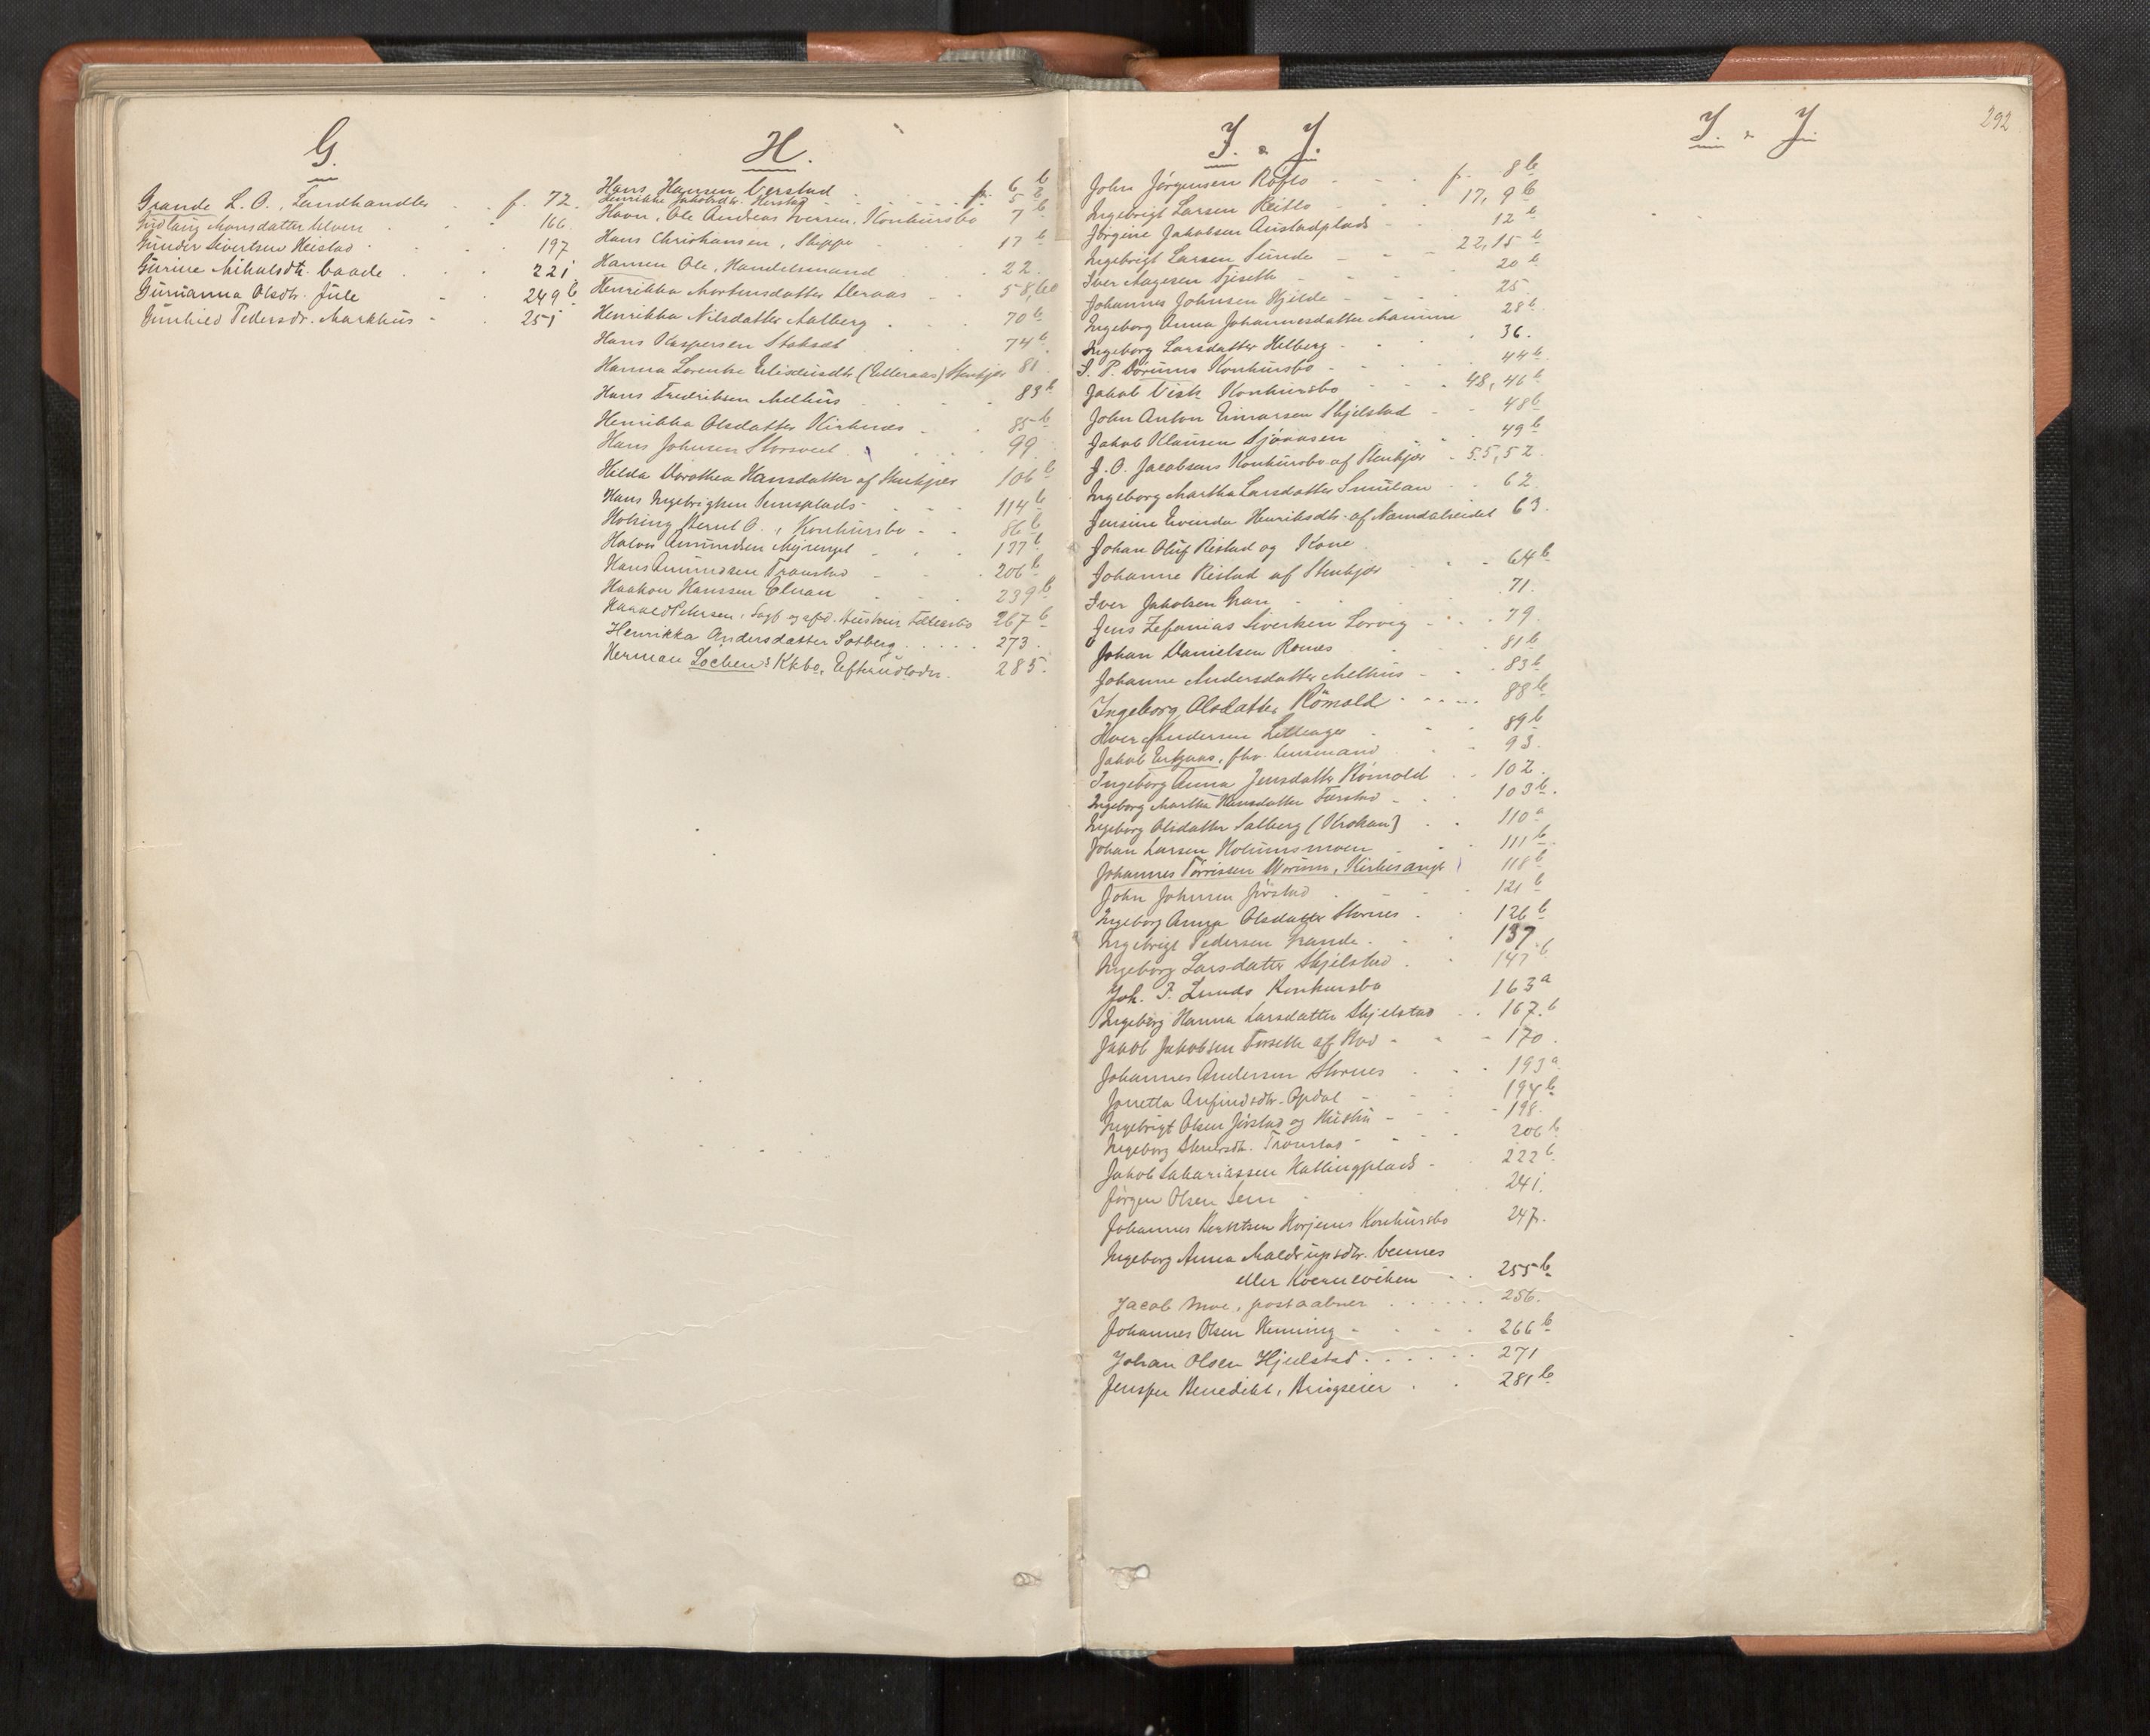 G.
Grande L. O., Landhandler f. 72.
Gudlaug Monsdatter Elven 166.
Gunder Sivertsen Heistad 197
Gurine Mikalsdtr. Caade 221
Gurianna Olsdtr. Jule 249 b
Gunhild Pedersdr. Markhus 251
H.
Hans Hansen Verstad f. 6 b
Henrikke Jakobsdtr. 5 b
Havn, Ole Andreas Iversen, Konkursbo 7 b
Hans Christiansen, Skipper 17 b
Hansen Ole, Handelsmand 22.
Henrikka Mortensdatter Leraas 58,60
Henrikka Nilsdatter Aalberg 70 b
Hans Kaspersen Stoksæt 74 b
Hanna Lorentse Elisdusdtr (Elleraas) Stenkjær 81
Hans Fredriksen Melhus 83 b
Henrikka Olsdatter Kirknes 85 b
Hans Johnsen Storsvet 99
Hilda Dorothea Hansdatter af Stenkjær 106 b
Hans Ingebrigtsen Semsplads 114 b
Holsing Bernt O., Konkursbo 86 b
Halvor Amundsen Myrenget 137 b
Hans Amundsen Transtad 206 b
Haakon Hanssen Elnan 239 b
Harald Petersen, Sagf. og afd. Hustrus Fællesbo 267 b
Henrikka Andersdatter Solberg 273.
Herman Lochen's Kkbo, Efterudlodn. 285.
I. & J.
John Jørgensen Røflo f. 8 b
Ingebrigt Larsen Reitlo 17, 9 b
Jørgine Jakobsen Austadplads 12 b
Ingebrigt Larsen Sunde 22, 15 b
Iver Aagesen Fjeseth 20 b
Johannes Johnsen Hjelde 25
Ingeborg Anna Johannesdatter Mamun 28 b
Ingeborg Larsdatter Helberg 36.
I. P. Dørums Konkursbo 44 b
Jakob Visth Konkursbo 48, 46 b
John Anton Einarsen Skjelstad 48 b
Jakob Klausen Sjøaasen 49 b
J. O. Jacobsens Konkursbo af Stenkjær 55, 52
Ingeborg Martha Larsdatter Smulan 62
Jensine Evenda Henriksdtr. af Namdalseidet 63.
Johan Oluf Ristad og Kone
Johanne Ristad af Stenkjær 64 b
Iver Jakobsen Gran 71.
Jens Zefanias Sivertsen Lorvig 79
Johan Danielsen Romes 81 b
Johanne Andersdatter Melhus 83 b
Ingeborg Olsdatter Römold 88 b
Iver Andersen Litleager 89 b
Jakob Ertzaas, fhv. Lensmand 93.
Ingeborg Anna Jensdatter Rømold 102.
Ingeborg Martha Hansdatter Tørstad 103 b.
Ingeborg Olsdatter Salberg (Krokan) 110 a
Johan Larsen Holiumsmoen 111 b
Johannes Tørrissen Worum, Kirkesanger 118 b
John Johnsen Jørstad 121 b
Ingeborg Anna Olsdatter Stornes 126 b
Ingebrigt Pedersen Grande 137
Ingeborg Larsdatter Skjelstad 147 b
Joh. P. Lunds Konkursbo 163 a
Ingeborg Hanna Larsdatter Skjelstad 167. b
Jakob Jakobsen Forseth af Stod 170.
Johannes Andersen Stornes 193 a
Jonetta Arfindsdtr. Opdal 194 b
Ingebrigt Olsen Jørstad og Hustru 198.
Ingeborg Tronstad 206 b
Jakob Sakariassen Hallingplads 222 b
Jørgen Olsen Sem 241.
Johannes Berntsen Korjems Konkursbo 247.
Ingeborg Anna Maldrupsdtr. Cennes
eller Kvernviken 255 b
Jacob Moe, postaabner 256.
Johannes Olsen Henning 266 b
Johan Olsen Hjeelstad 271
Jensfer Benedikt, Brugseier 281 b
I. & J.
292